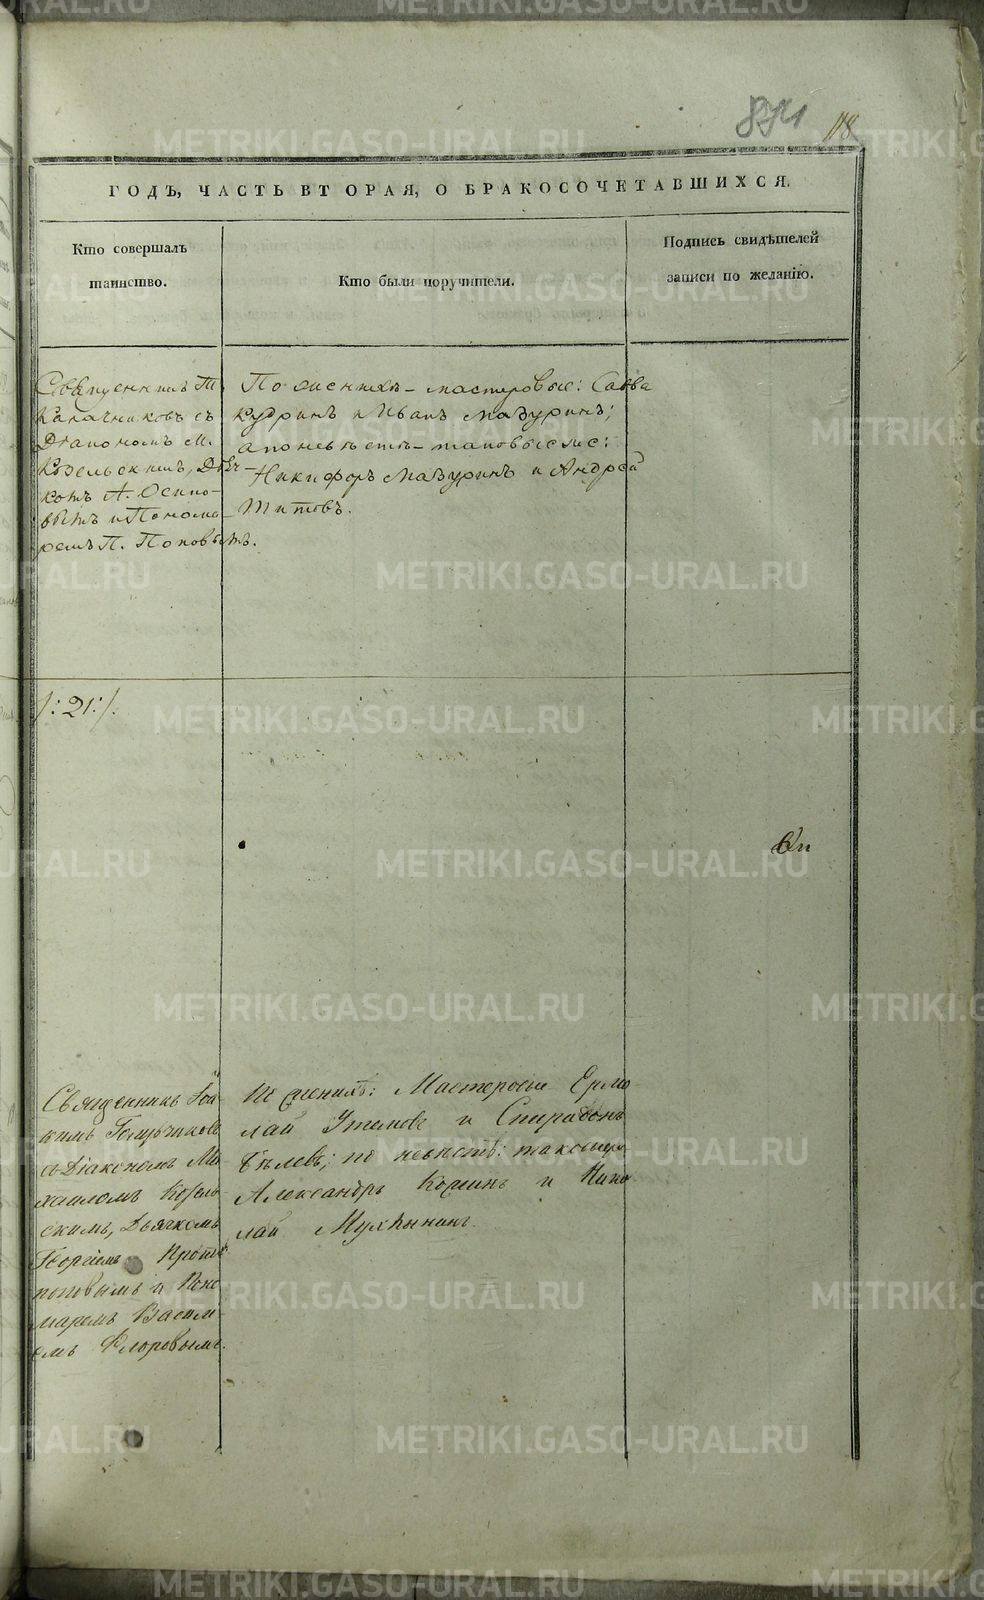 874 118
ГОДЪ, ЧАСТЬ ВТОРАЯ, О БРАКОСОЧЕТАВШИХСЯ.
Кто совершалъ
таинство.
Кто были поручители.
Подпись свидѣтелей
записи по желанію.
Священникъ Т.
Калачниковъ съ
Діакономъ М.
Козельскимъ, Дьяч-
комъ А. Осипо-
вымъ и Понома-
ремъ П. Поповымъ.
По женихѣ – мастеровые: Савва
Кудринъ и Иванъ Мазуринъ;
а по невѣстѣ – таковые же:
Никифоръ Мазуринъ и Андрей
Титовъ.
/:21:/.
Священникъ
съ Діакономъ Ми-
хаиломъ Козель-
скимъ, Дьячкомъ
Георгіемъ Прото-
поповымъ и Поно-
маремъ Василь-
емъ Флоровымъ.
По женихѣ: Мастеровые Ермо-
лай и Спиридонъ
Бѣлевъ; по невѣстѣ:
Александръ и Нико-
лай
METRIKI.GASO-URAL.RU